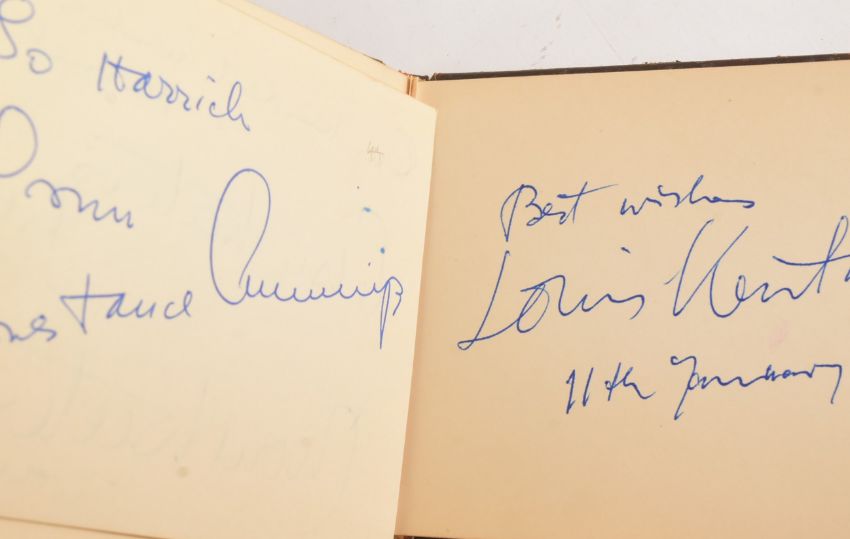 So Harrich
from
Constance Cummings
44
Best wishes
Louis Kent
11th January